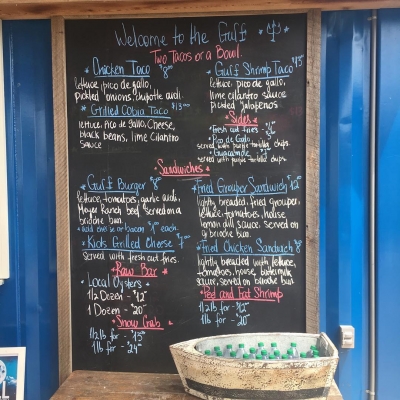 Welcome to the Gulf
Two Tacos or a Bowl
Chicken Taco $8
lettuce, pico de gallo,
pickled onions, chipotle aioli.
Grilled Cobia Taco $13
lettuce, Pico de Gallo, Cheese,
black beans, lime Cilantro
sauce
Gulf Shrimp Taco
lettuce, pico de gallo,
lime cilantro sauce
pickled Jalapeños
Sides
Fresh cut fries
Pico de Gallo
served with purple tortilla chips.
Guacamole
served with purple tortilla chips.
Sandwiches
Gulf Burger $8
lettuce, tomatoes, garlic aioli,
Meyer Ranch beef. Served on a
brioche bun.
add cheese or bacon $1 each.
Kids Grilled Cheese $7
Served with fresh cut fries.
Raw Bar
Local Oysters
1/2 Dozen - $12
1 Dozen - $20
Snow Crab
1/2 lb for - $15
1 lb for - $24
Fried Grouper Sandwich $12
lightly breaded, fried grouper,
lettuce, tomatoes, house
lemon dill sauce. Served on
a brioche bun.
Fried Chicken Sandwich $8
lightly breaded with lettuce,
tomatoes, house, buttermilk
sauce, served on brioche bun
Peel and Eat Shrimp
1/2 lb for - $12
1 lb for - $20